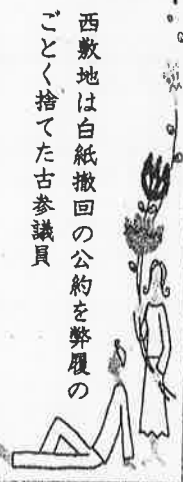 西敷地は白紙撤回の公約を弊履の
ごとく捨てた古参議員